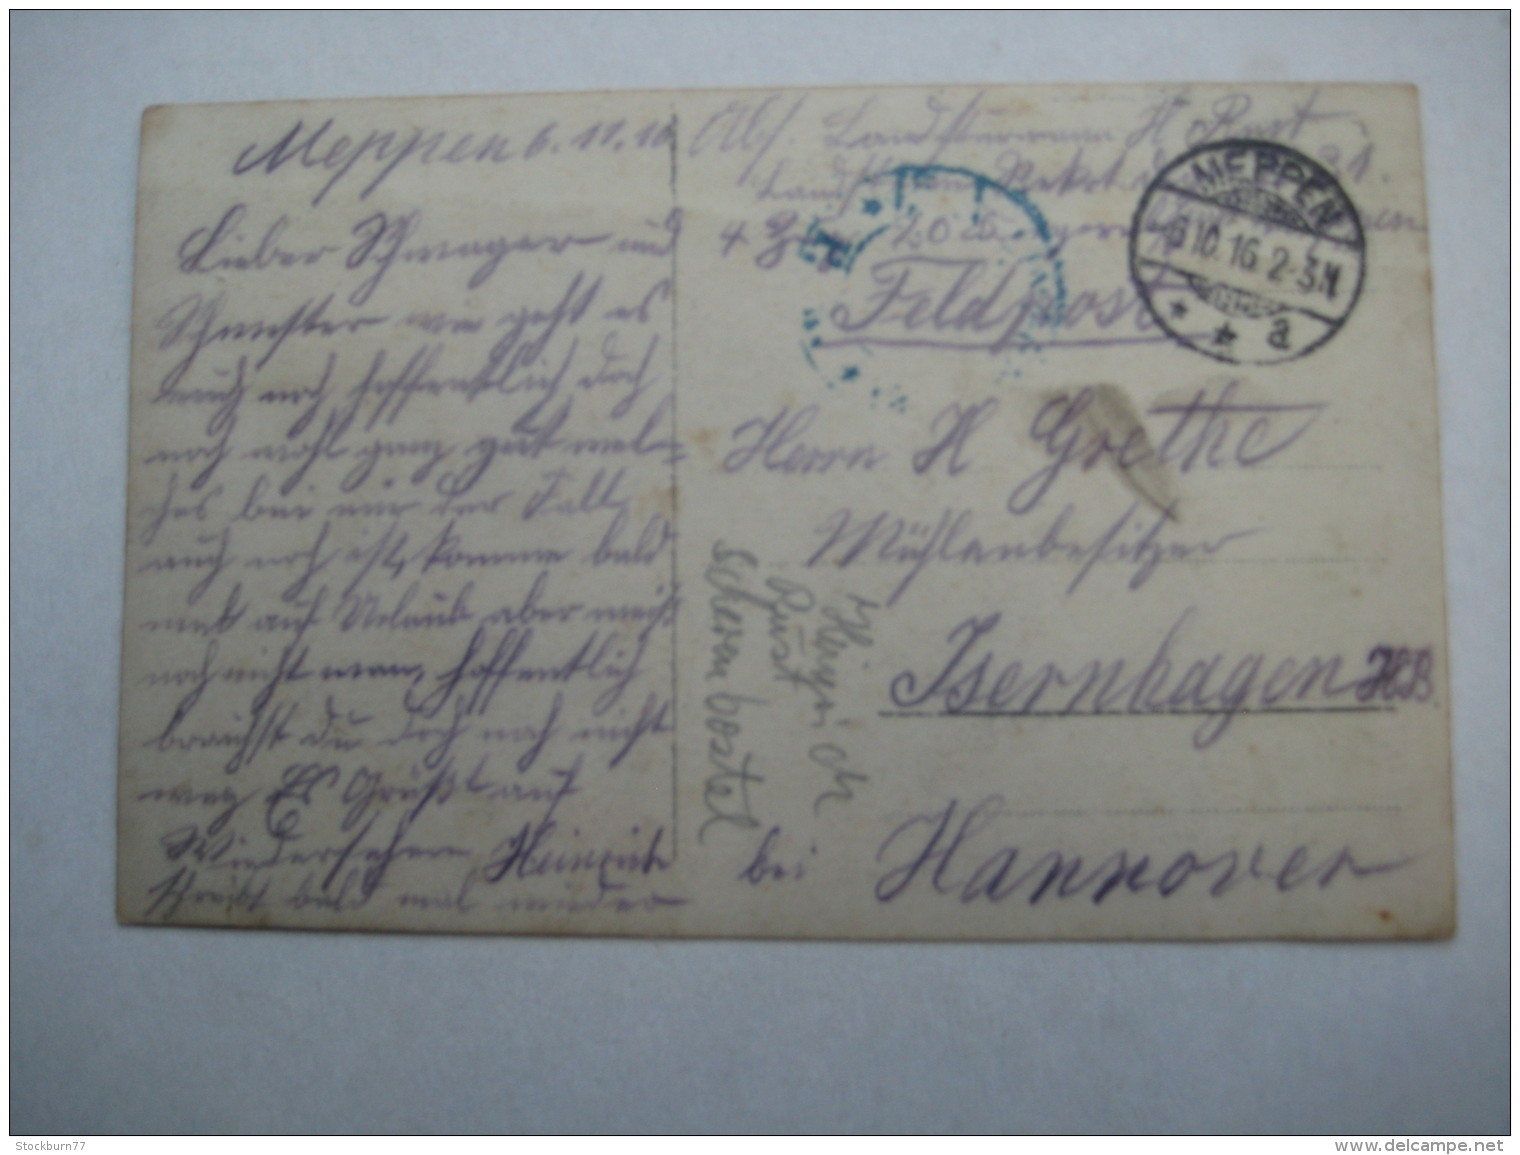 Meppen 6.11.16
Lieber Schwager und
Schwester wie geht es
auch noch hoffentlich doch
noch wohl ganz gut wel=
ches bei mir der Fall
auch noch ist, komme bald
mal auf Urlaub aber weiß
noch nicht wann, hoffentlich
brauchst du doch noch nicht
weg Es Grüßt auf
Wiedersehen Heinrich
schreibt bald mal wieder
Abs. Landsturmmann H Rust
Landsturm Rekrt
4
Feldpost
MEPPEN
6 10.16 2-3N
* * a
Herrn H Grethe
Mühlenbesitzer
Isernhagen HB.
bei Hannover
Heinrich
Rust
Scherenbostel
Stockburn77
www.delcampe.net